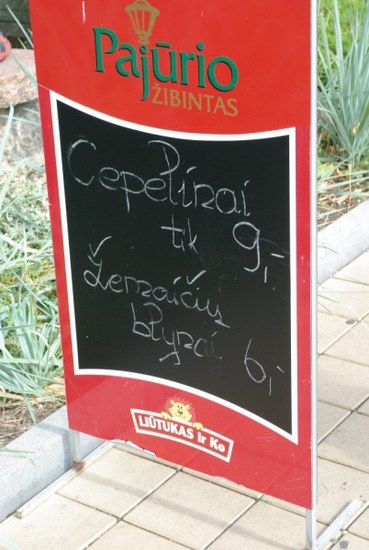 Pajūrio
ŽIBINTAS
Cepelinai
tik 9,-
Žemaičių
blynai 6,-
LIŪTUKAS Ir Ko